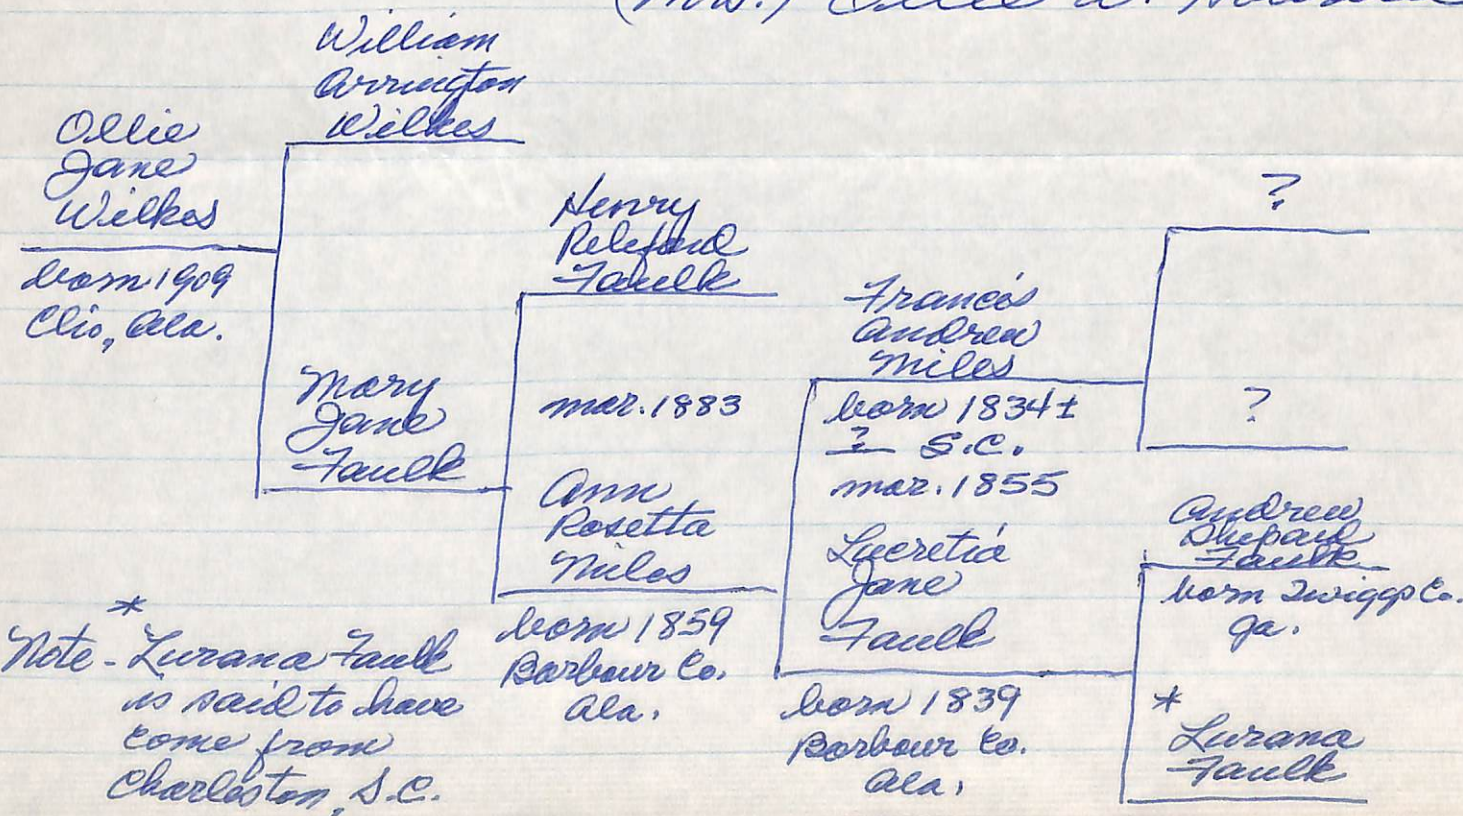 (Mrs.) Ollie W.
William
Arrington
Wilkes
Ollie
Jane
Wilkes
born 1909
Clio, Ala.
Mary
Jane
Faulk
Henry
Releford
Faulk
mar. 1883
Ann
Rosetta
Miles
born 1859
Barbour Co.
Ala.
Francis
Andrew
Miles
born 1834±
? S.C.
mar. 1855
Lucretia
Jane
Faulk
born 1839
Barbour Co.
Ala.
?
?
Andrew
Shepard
Faulk
born Twiggs Co.
Ga.
*
Lurana
Faulk
*
Note - Lurana Faulk
is said to have
come from
Charleston, S.C.